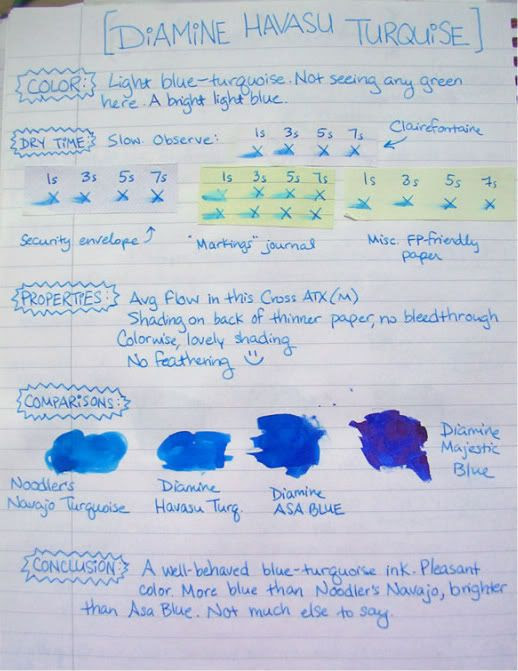 [DIAMINE HAVASU TURQUISE]
COLOR: Light blue-turquoise. Not seeing any green
here. A bright light blue.
DRY TIME: Slow. Observe: 1s 3s 5s 7s Clairefontaine
x x x x
1s 3s 5s 7s 1s 3s 5s 7s 1s 3s 5s 7s
x x x x x x x x x x x x
x x x x
Security envelope "Markings" journal Misc. FP-friendly
paper
PROPERTIES: Avg flow in this Cross ATX (M)
Shading on back of thinner paper, no bleedthrough
Colorwise, lovely shading
No feathering
COMPARISONS:
Noodler's
Navajo Turquoise
Diamine
Havasu Turq.
Diamine
ASA BLUE
Diamine
Majestic
Blue
CONCLUSION: A well-behaved blue-turquoise ink. Pleasant
color. More blue than Noodler's Navajo, brighter
than Asa Blue. Not much else to say.